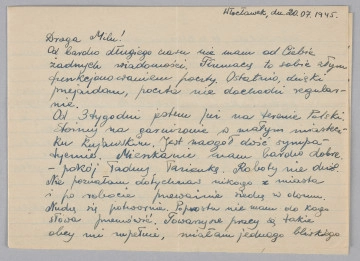 Włocławek, dn 20.07.1945.
Droga Milu!
Od bardzo długiego czasu nie mam od Ciebie
żadnych wiadomości. Tłumaczę to sobie złym
funkcjonowaniem poczty. Ostatnio, dzięki
przejazdom, poczta nie dochodzi regular-
nie.
Od 3 tygodni jestem już na terenie Polski.
Stoimy na garnizonie w małym miastecz-
ku Kujawskim. Jest naogół dość sympa-
tycznie. Mieszkanie mam bardzo dobre
- pokój ładny. Roboty nie dużo.
Nie poznałam dotychczas nikogo z miasta
i po robocie przeważnie siedzę w domu.
Nudzę się potwornie. Poprostu nie mam do kogo
słowa przemówić. Towarzysze pracy są także
obcy mi zupełnie, miałam jednego bliskiego